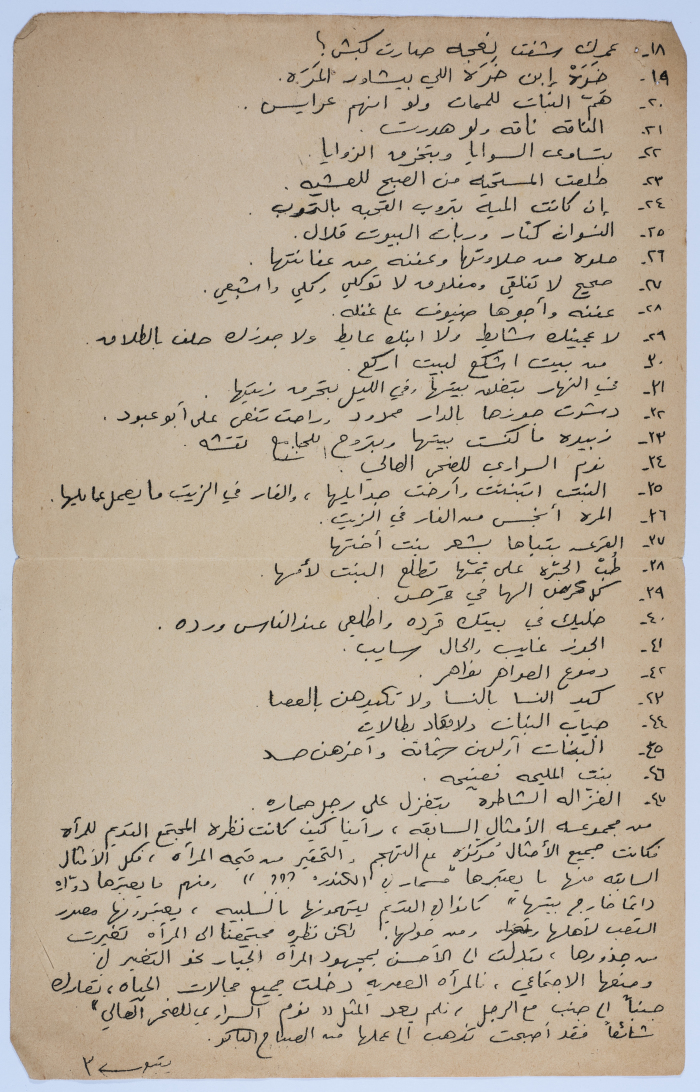 ١٨- عمرك شفت نعجه صارت كبش؟!
١٩- ضَرّة إبن ضَرّة اللي بيشاور المَرَه.
٢٠- همّ البنات للممات ولو انهم عرايس.
٢١- الناقه ناقه ولو هدرت.
٢٢- بتساوى السوايا وبتخرق الزوايا.
٢٣- طلعت المستحيه من الصبح للعشيه.
٢٤- إن كانت الميه بتروب القحبه بالتوب.
٢٥- النسوان كتار وربات البيوت قلال.
٢٦- حلوه من حلاوتها وعفنه من عفانتها.
٢٧- صحيح لا تفلقي ومفلاق لا توكلي وكلي واشبعي.
٢٨- عفنه وأجوها ضيوف على غفله.
٢٩- لا عجينك شايط ولا ابنك عايط ولا جوزك حلف بالطلاق.
٣٠- من بيت اشكع لبيت اركع.
٣١- في النهار بتغلق بيتها وفي الليل بتحرق زيتها.
٣٢- دشرت جوزها بالدار ممدود وراحت تنعى على أبو عبود.
٣٣- زبيده ما كنست بيتها وبتروح للجامع تقشه.
٣٤- نوم السراري للضحى العالي.
٣٥- البنت اتبنتت وأرخت جدايلها، والفار في الزيت ما يعمل عمايلها.
٣٦- المره أنجس من الفار في الزيت.
٣٧- القرعه بتباها بشعر بنت أختها
٣٨- طُبّ الجرّه على تمّها تطلع البنت لأمها.
٣٩- كل عرس الها في قرص.
٤٠- خليك في بيتك قرده واطلعي عند الناس ورده.
٤١- الجوز غايب والحال سايب.
٤٢- دموع العواهر نواهر.
٤٣- كيد النسا بالنسا ولا تكيدهن بالعصا.
٤٤- جياب البنات ولا قعاد بطالات
٤٥- البنات أولهن شماته وآخرهن حسد
٤٦- بنت المليحه فضيحه.
٤٧- الغزاله الشاطره بتغزل على رجل حماره.
من مجموعة الأمثال السابقه، رأينا كيف كانت نظرة المجتمع القديم للمرأه
فكانت جميع الأمثال مركزه على التهجم والتحقير من قيمة المرأه، فكل الأمثال
السابقه منها ما يعتبرها "مسمار في الكندره ؟؟؟" ومنهم ما يعتبرها دوّاره
دائما خارج بيتها" كانوا في القديم يتهمونها بالسلبيه، يعتبرونها مصدر
التعب لأهلها ومن حولها. لكن نظرة مجتمعنا الى المرأه تغيرت
من جذورها، تبدلت الى الأحسن بمجهود المرأه الجبار نحو التغيير في
وضعها الاجتماعي، فالمرأه العصريه دخلت جميع مجالات الحياه، تعارك
جنباً الى جنب مع الرجل، فلم يعد المثل "نوم السراري للضحى العالي"
شائعاً فقد أصبحت تذهب الى عملها منذ الصباح الباكر.
يتبع ← ٣